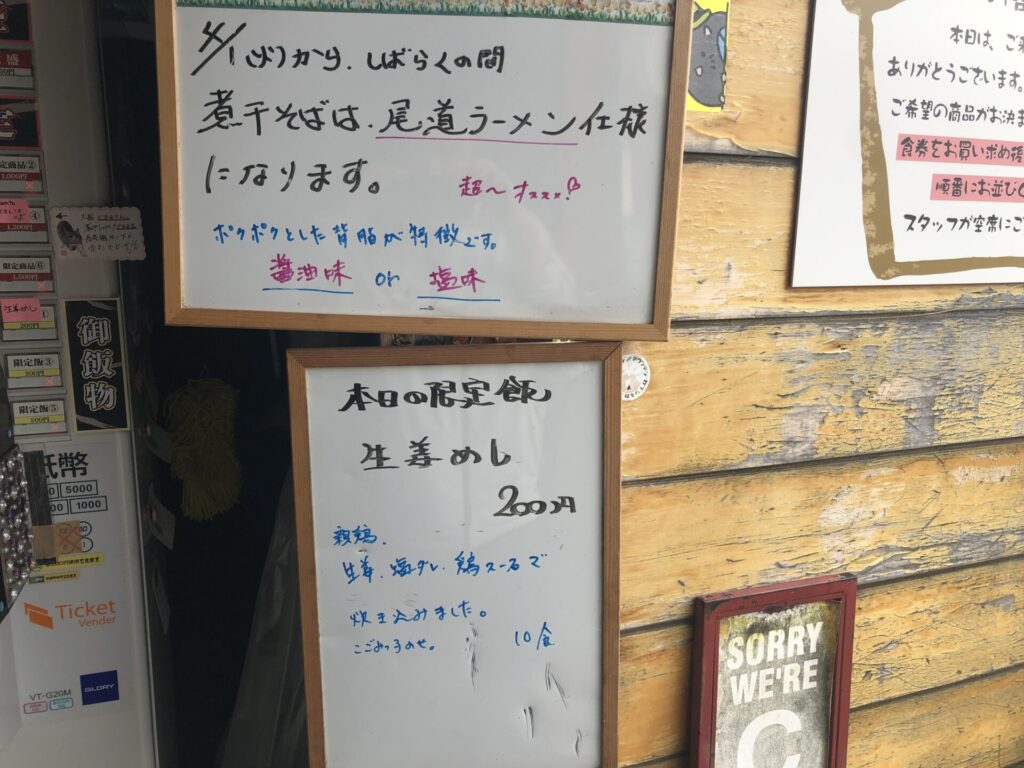 4/1(火)から、しばらくの間
煮干そばは、尾道ラーメン仕様
になります。
超〜オススメ!
ポクポクとした背脂が特徴です。
醤油味 or 塩味
本日の限定飯
生姜めし
200円
親鶏、
生姜、塩ダレ、鶏スープで
炊き込みました。
10食
本日は、ご来
ありがとうございます。
ご希望の商品がお決ま
食券をお買い求め
順番にお並び
スタッフが空席にご
定商品②
1,000円
④
1,200円
限定商品⑥
1,500円
生姜めし
200円
限定飯③
300円
限定飯⑤
500円
御飯物
紙幣
5000
1000
Ticket
Vender
VT-G20M
GLORY
SORRY
WE'RE
C